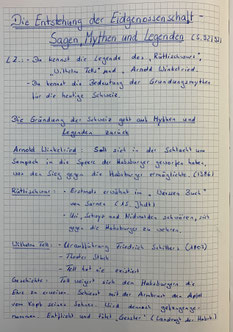 Die Entstehung der Eidgenossenschaft -
Sagen, Mythen und Legenden (S. 32/33)
LZ.: - Du kennst die Legende des „Rütlischwurs",
„Wilhelm Tells" und Arnold Winkelried.
- Du kennst die Bedeutung der Gründungsmythen
für die heutige Schweiz.
Die Gründung der Schweiz geht auf Mythen und
Legenden zurück
Arnold Winkelried: Soll sich in der Schlacht von
Sempach in die Speere der Habsburger geworfen haben,
was den Sieg gegen die Habsburger ermöglichte. (1386)
Rütlischwur: - Erstmals erwähnt im „Weissen Buch"
von Sarnen (15. Jhdt)
- Uri, Schwyz und Nidwalden schwören, sich
gegen die Habsburger zu wehren.
Wilhelm Tell: - Uraufführung Friedrich Schillers (1804)
- Theater Stück
- Tell hat nie existiert
Geschichte: - Tell weigert sich den Habsburgern die
Ehre zu erweisen. Schiesst mit der Armbrust den Apfel
vom Kopf seines Sohnes. Wird dennoch gefangenge-
nommen. Entflieht und tötet „Gessler" (Landvogt der Habsb.)